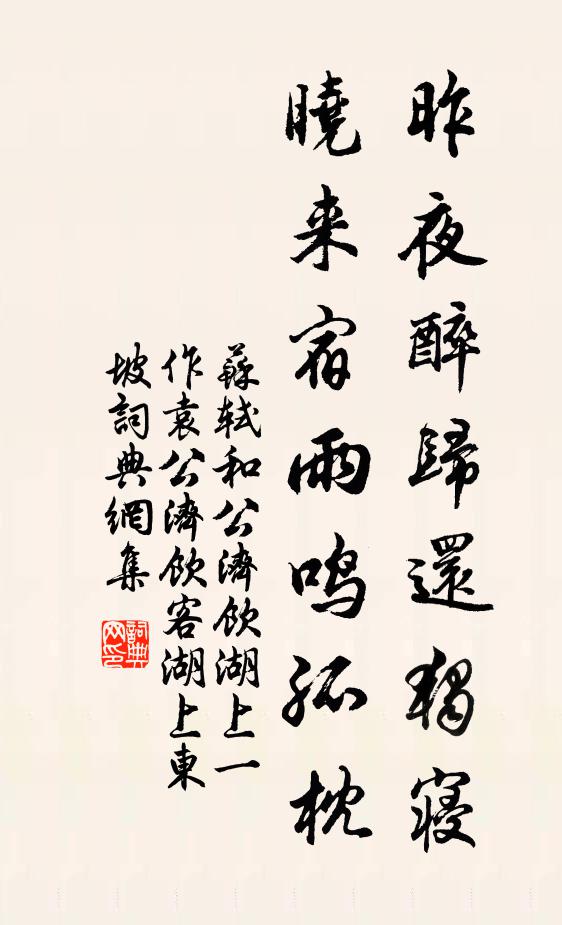 昨夜醉歸還獨寢
曉来宿雨鳴孤枕
蘇軾和公濟飲湖上一
作袁公濟飲客湖上東
坡詞典網集
詞典
网印